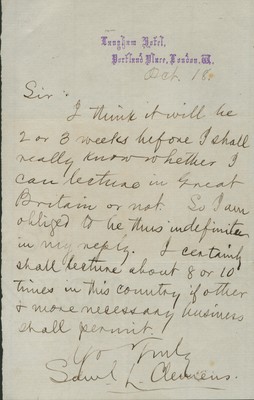 Langham Hotel,
Portland Place, London, W.
Oct. 18.
Sir:
I think it will be
2 or 3 weeks before I shall
really know whether I
can lecture in Great
Britain or not. So I am
obliged to be thus indefinite
in my reply. I certainly
shall lecture about 8 or 10
times in this country if other
& more necessary business
shall permit.
Yrs Truly
Saml. L. Clemens.